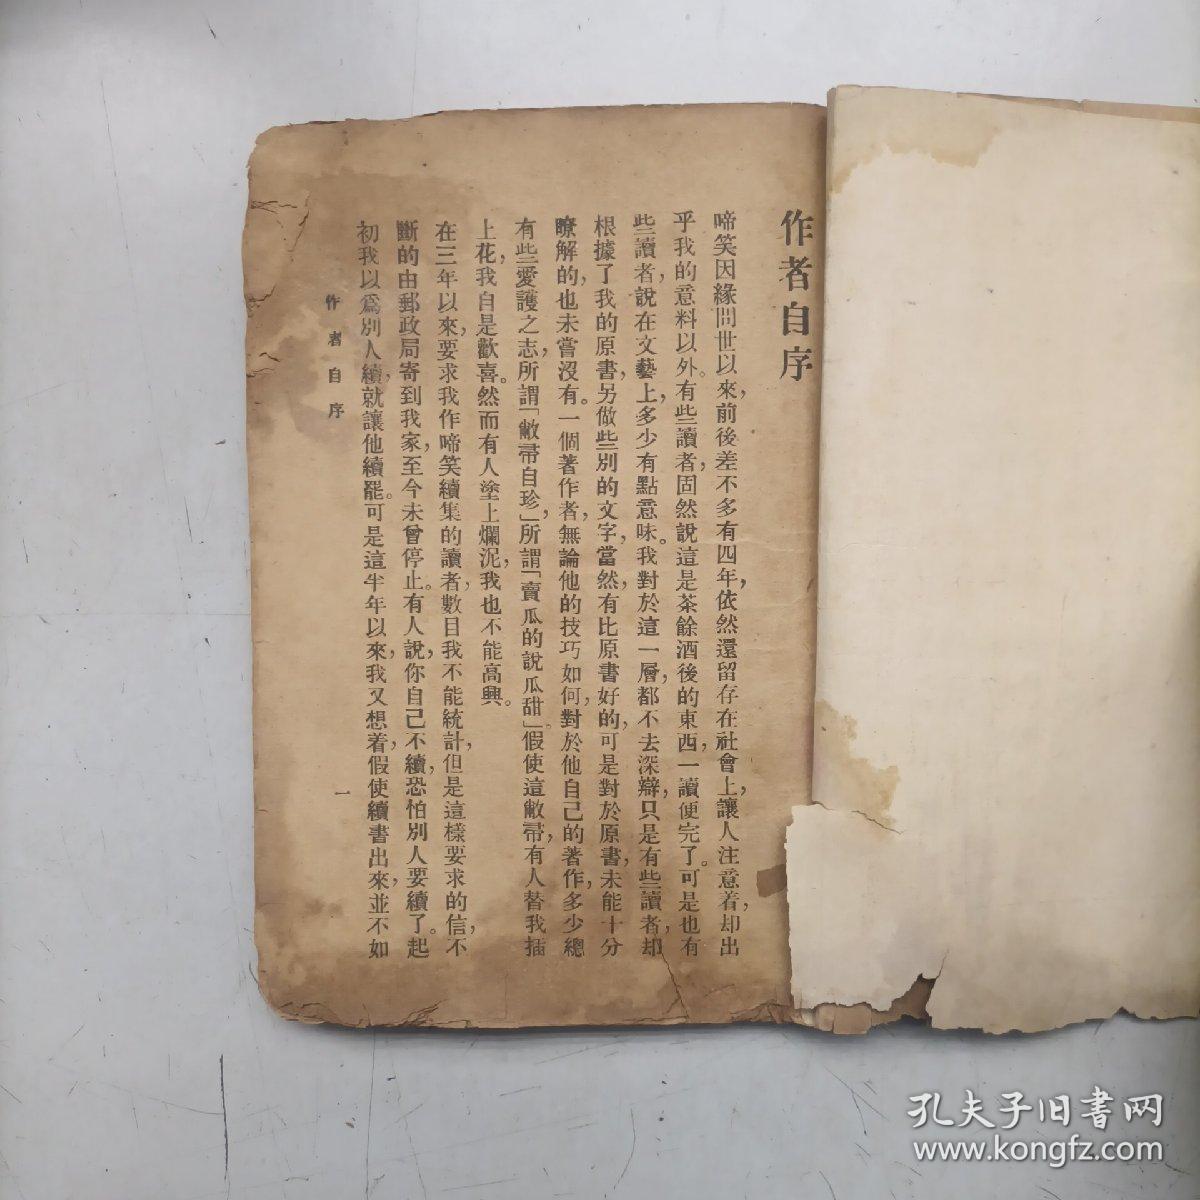 作者自序
啼笑因緣問世以來，前後差不多有四年，依然還留存在社會上，讓人注意着，却出
乎我的意料以外。有些讀者，固然說這是茶餘酒後的東西，一讀便完了。可是也有
些讀者，說在文藝上，多少有點意味。我對於這一層，都不去深辯，只是有些讀者，却
根據了我的原書，另做些別的文字，當然，有比原書好的，可是對於原書，未能十分
瞭解的，也未嘗沒有。一個著作者，無論他的技巧如何，對於他自己的著作，多少總
有些愛護之志，所謂「敝帚自珍」，所謂「賣瓜的說瓜甜」。假使這敝帚，有人替我插
上花，我自是歡喜。然而有人塗上爛泥，我也不能高興。
在三年以來，要求我作啼笑續集的讀者，數目我不能統計，但是這樣要求的信，不
斷的由郵政局寄到我家，至今未曾停止。有人說，你自己不續，恐怕別人要續了。起
初我以爲別人續，就讓他續罷。可是這半年以來，我又想着，假使續書出來，並不如
作者自序
一
孔夫子旧書网
www.kongfz.com